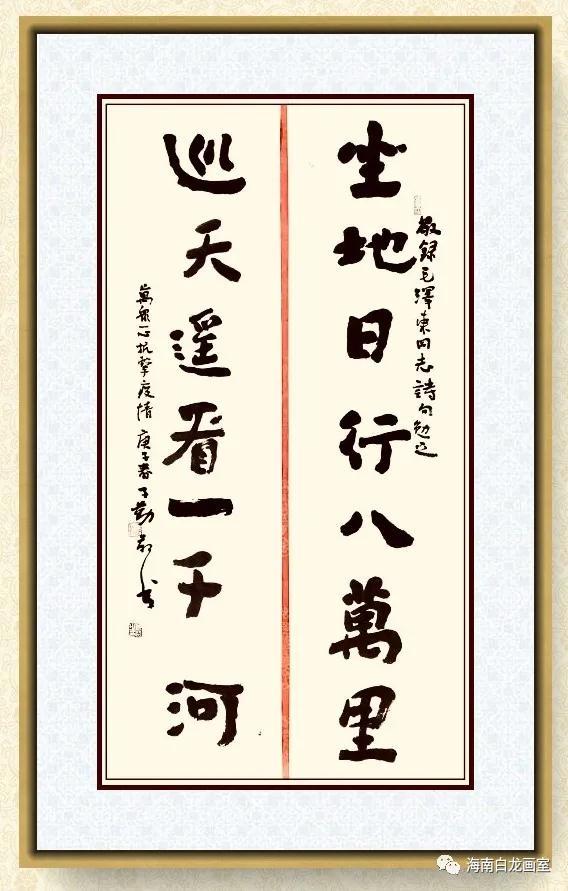 坐地日行八萬里
敬録毛澤東同志詩句勉之
巡天遥看一千河
萬眾一心抗擊疫情 庚子春 子勤敬書
海南白龙画室